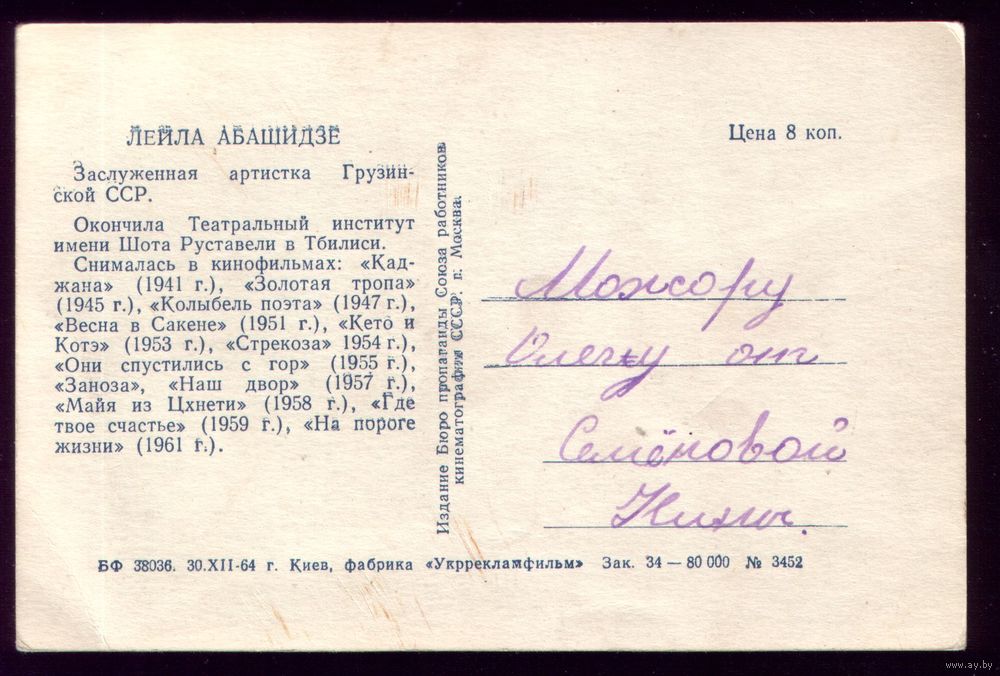 ЛЕЙЛА АБАШИДЗЕ
Заслуженная артистка Грузин-
ской ССР.
Окончила Театральный институт
имени Шота Руставели в Тбилиси.
Снималась в кинофильмах: «Кад-
жана» (1941 г.), «Золотая тропа»
(1945 г.), «Колыбель поэта» (1947 г.),
«Весна в Сакене» (1951 г.), «Кето и
Котэ» (1953 г.), «Стрекоза» 1954 г.),
«Они спустились с гор» (1955 г.),
«Заноза», «Наш двор» (1957 г.),
«Майя из Цхнети» (1958 г.), «Где
твое счастье» (1959 г.), «На пороге
жизни» (1961 г.).
Издание Бюро пропаганды Союза работников
кинематографии СССР. г. Москва.
Цена 8 коп.
Можсору
Олегу от
Семёновой
Нины.
БФ 38036. 30.XII-64 г. Киев, фабрика «Укррекламфильм» Зак. 34 — 80 000 № 3452
www.ay.by